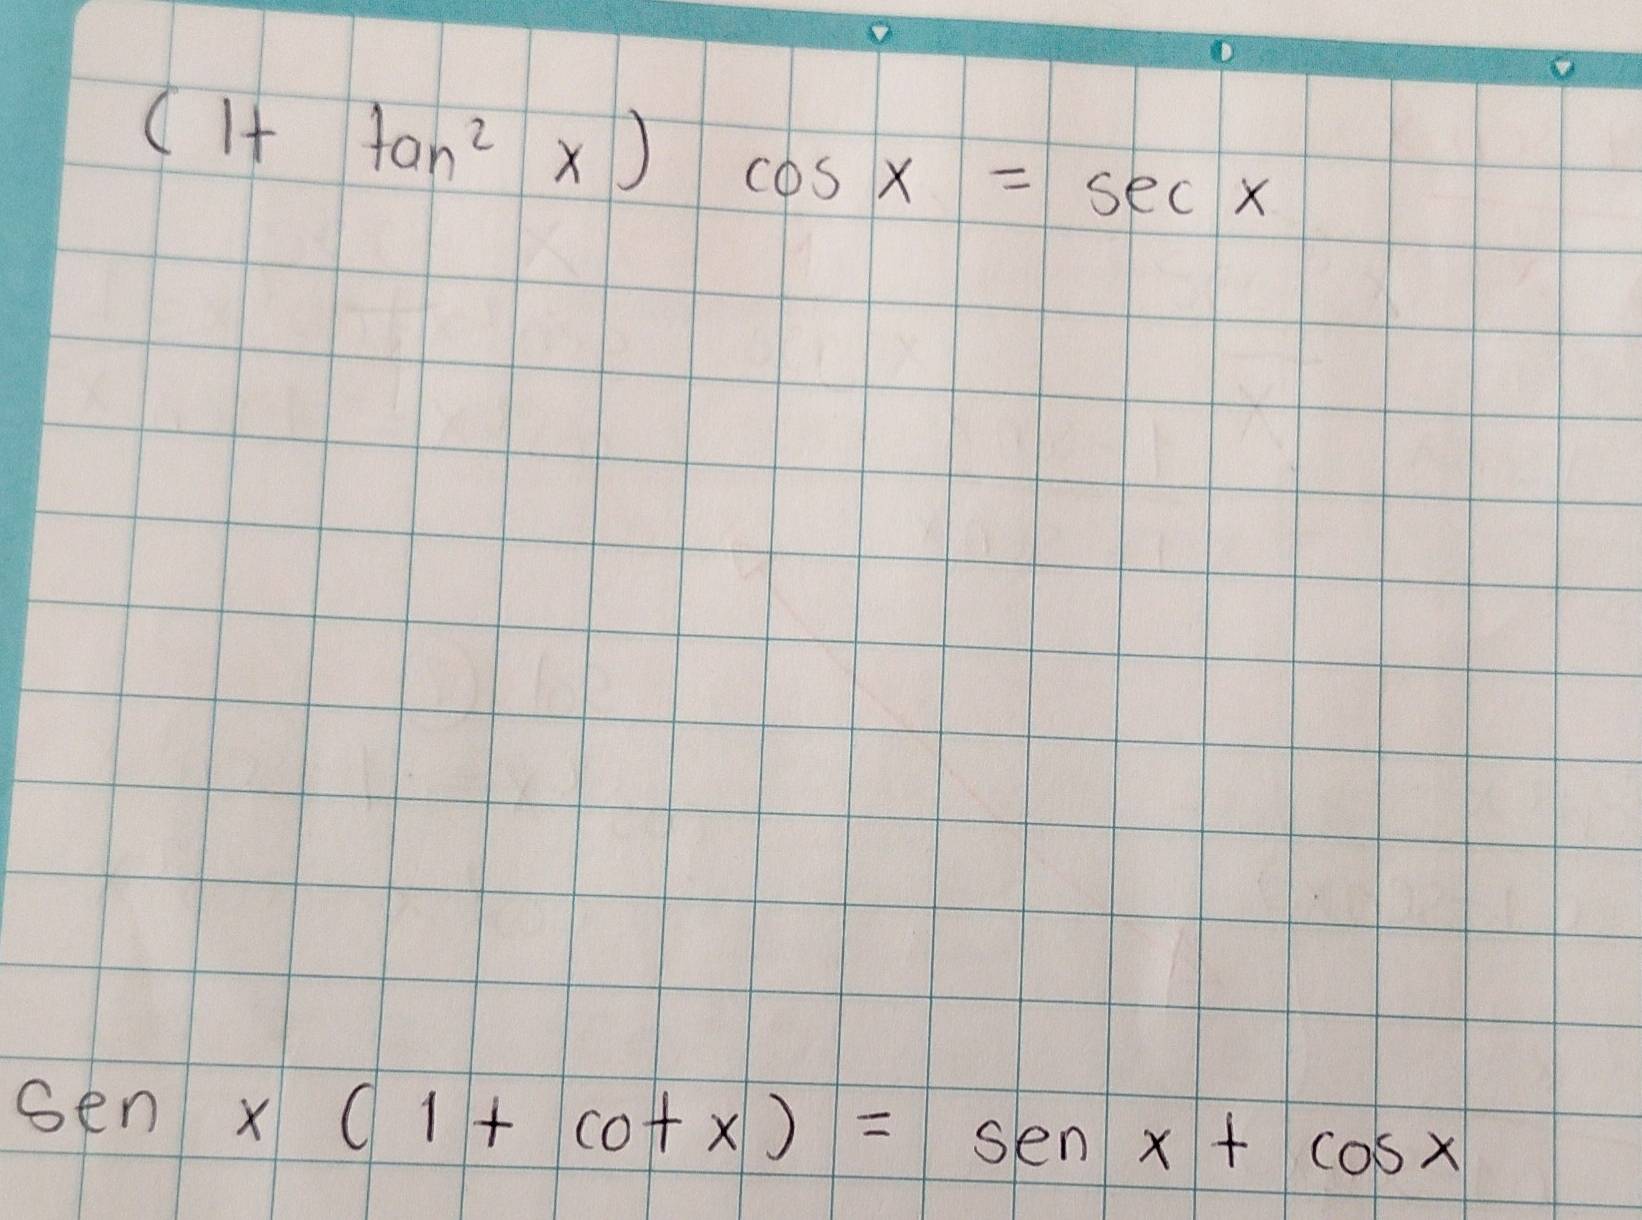 (1+ tan² x) cos x = sec x
sen x (1 + cot x) = sen x + cos x